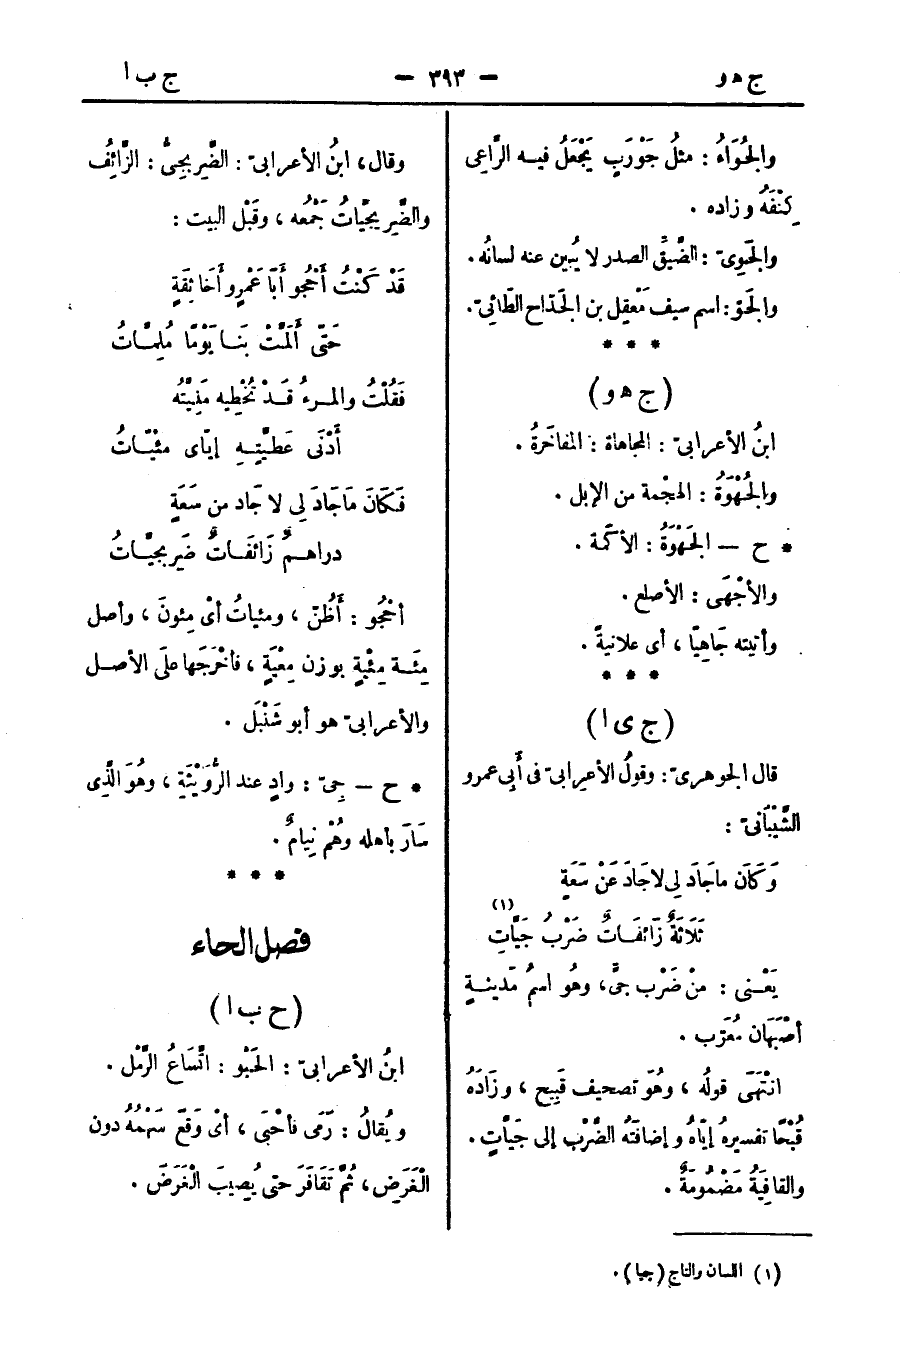 ج هو
— ٣٩٣ —
ج ب ا
والجُوَاءُ : مثلُ جَوْرَبٍ يَجْعَلُ فيه الرَّاعى
كِنْفَهُ وزاده .
والجَوِىّ : الضَّيِّقُ الصدر لا يُبين عنه لسانُه .
والجَوّ : اسم سيف مَعْقِل بن الجَدّاح الطّائِىّ .
* * *
(ج هو)
ابنُ الأعرابىّ : المجاهاة : المفاخَرةُ .
والجُهْوَةُ : الهجْمة من الإبل .
* ح — الجَهْوَةُ : الأكَمة .
والأجْهَى : الأصلع .
وأتيته جَاهِيًا ، أى علانيةً .
* * *
(ج ى ا)
قال الجوهرىّ : وقولُ الأعرابىّ فى أَبِى عمرو
الشَّيْبَانىّ :
وَكَانَ ماجَادَ لِى لاجَادَ عَنْ سَعَةٍ
ثَلَاثَةٌ زَائفَاتٌ ضَرْبُ جَيَّاتِ (١)
يَعْنى : منْ ضَرْب جىَّ، وهُو اسمُ مَدينةِ
أَصْبَهَان مُعَرّب .
انْتَهَى قولُه ، وهُوَ تصحيف قَبِيح ، وزَادَهُ
قُبْحًا تفسيرهُ إيّاهُ وإضافَتُه الضَّرْب إلى جَيَّاتٍ .
والقافِيَةُ مَضْمُومَةٌ .
(١) اللسان والتاج (جيا) .
وقال، ابنُ الأعرابىّ : الضَّربجىُّ : الزَّائفُ
والضَّربجيَّاتُ جَمْعُه ، وقَبْل البيت :
قَدْ كَنْتُ أَحْجُو أَبَا عَمْرٍو أَخَا ثِقَةٍ
حَتّى أَلَمَّتْ بنَا يَوْمًا مُلِمَّاتُ
فَقُلْتُ والمرءُ قَدْ تُخْطِيه مَنِيَّتُه
أَدْنَى عَطِيَّتِهِ إيّاى مئْيّاتُ
فَكَانَ مَاجَادَ لِى لا جَاد من سَعَةٍ
دراهمٌ زَائفَاتٌ ضَربجيَّاتُ
أحْجُو : أَظُنّ ، ومئيات أىْ مِئونَ ، وأصل
مِئَة مِئْيَةٍ بوزن مِعْيَةٍ ، فأخْرَجَها علَى الأصل
والأعرابىّ هو أبو شَنْبَل .
* ح — جِىّ : وادٍ عند الرُّوَيْثَةِ ، وهُوَ الَّذِى
سَارَ بأهله وهُمْ نِيامٌ .
* * *
فصل الحاء
(ح ب ا)
ابنُ الأعرابىّ : الحَبْو : اتِّسَاعُ الرَّمْل .
ويُقالُ : رَمَى فأحْبَى ، أىْ وَقَعَ سَهْمُهُ دون
الْغَرَضِ ، ثُمَّ تَقَافَرَ حتى يُصِيبَ الغَرَضَ .